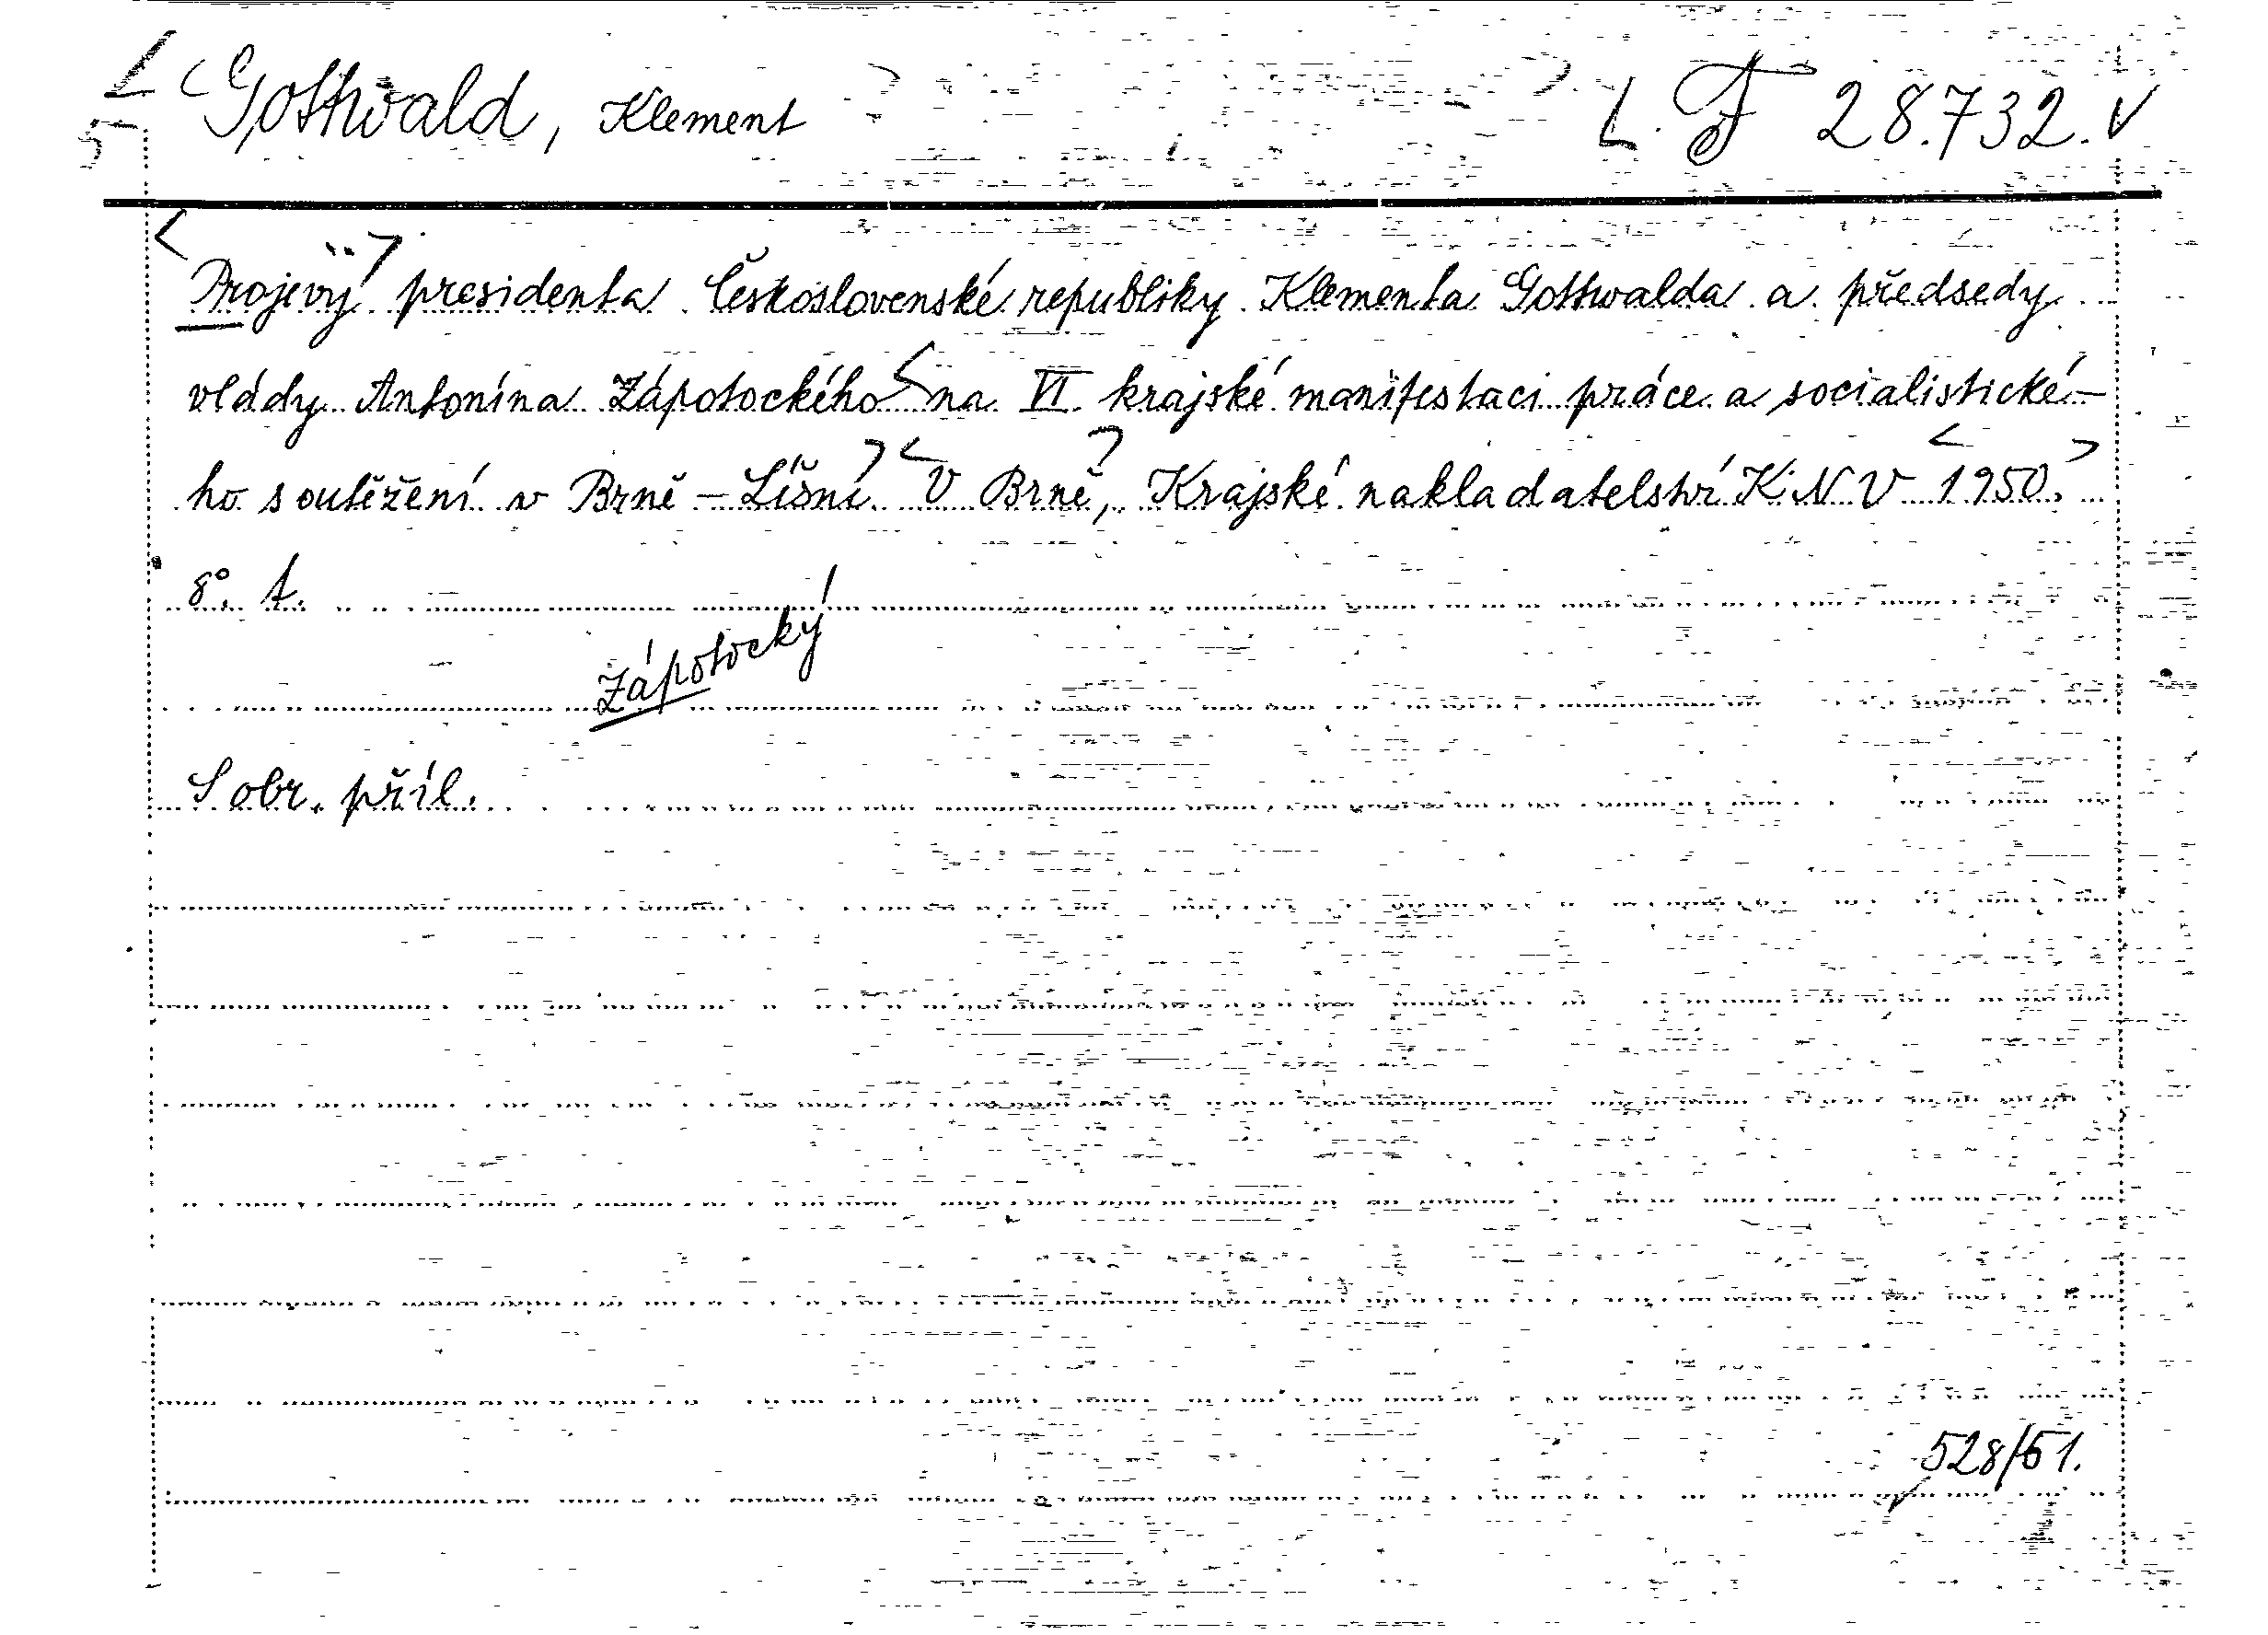 Gottwald, Klement L. F 28.732. V
Projevy presidenta Československé republiky Klementa Gottwalda a předsedy
vlády Antonína Zápotockého na VI. krajské manifestaci práce a socialistické-
ho soutěžení v Brně - Líšni. V Brně, Krajské nakladatelství K N V 1950.
8°. t.
Zápotocký
S obr. příl.
528/51.